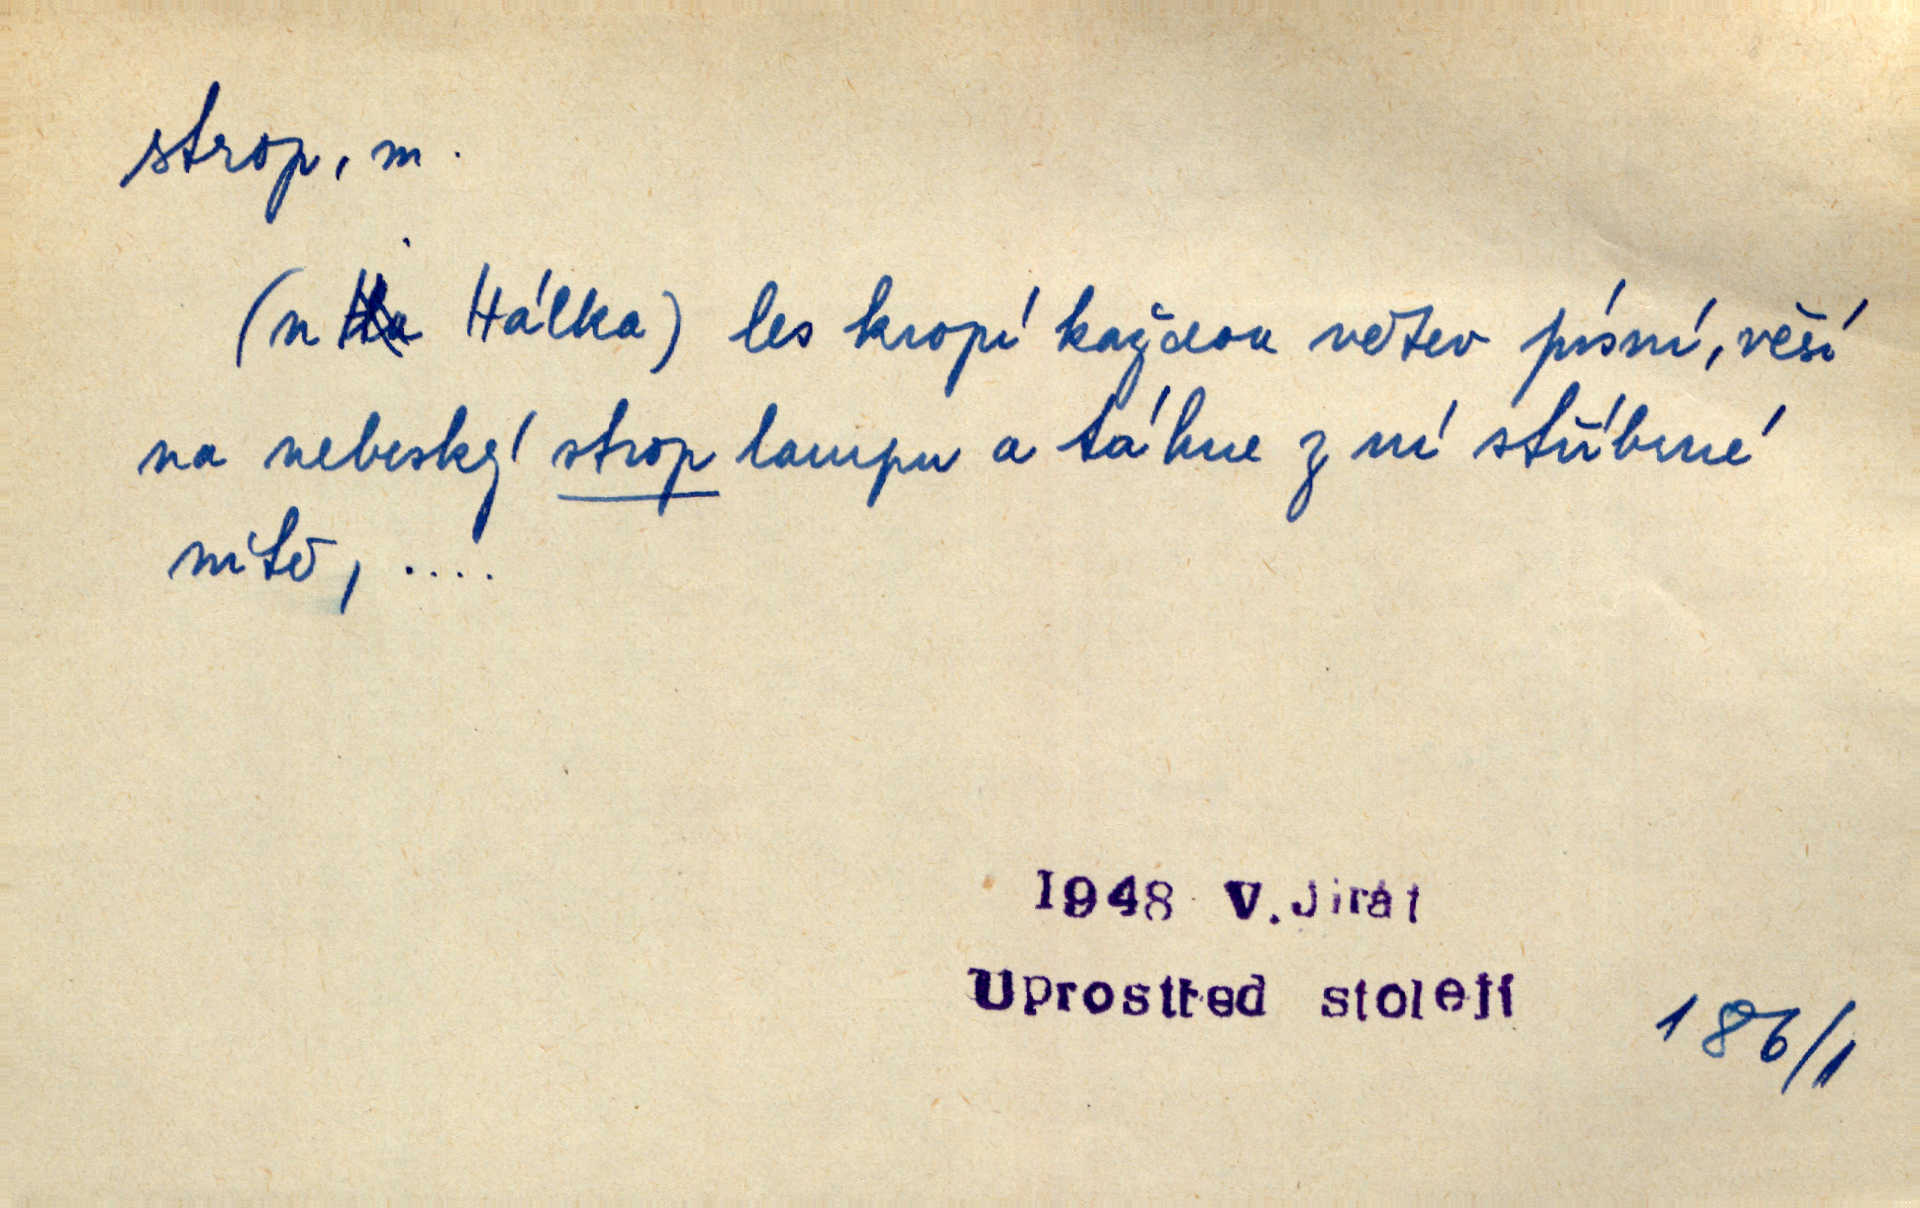 strop, m.
(u Hálka) les kropí každou větev písní, věší
na nebeský strop lampu a táhne z ní stříbrné
nitě, ....
1948 V. Jirát
Uprostřed století
186/1